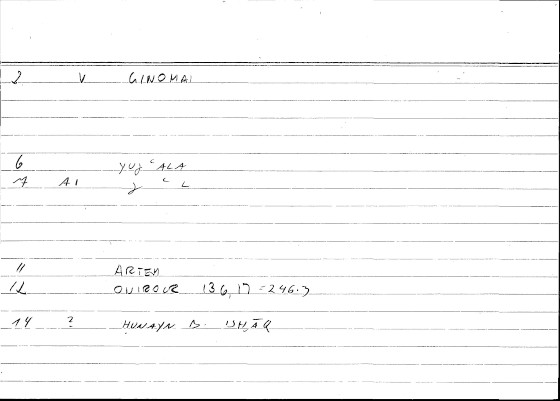 2 V GINOMAI
6 YUJʿALA
7 A1 J ʿ L
11 ARTEM
12 ONIROCR 136,17 = 246.3
14 ? ḤUNAYN B. ISḤĀQ